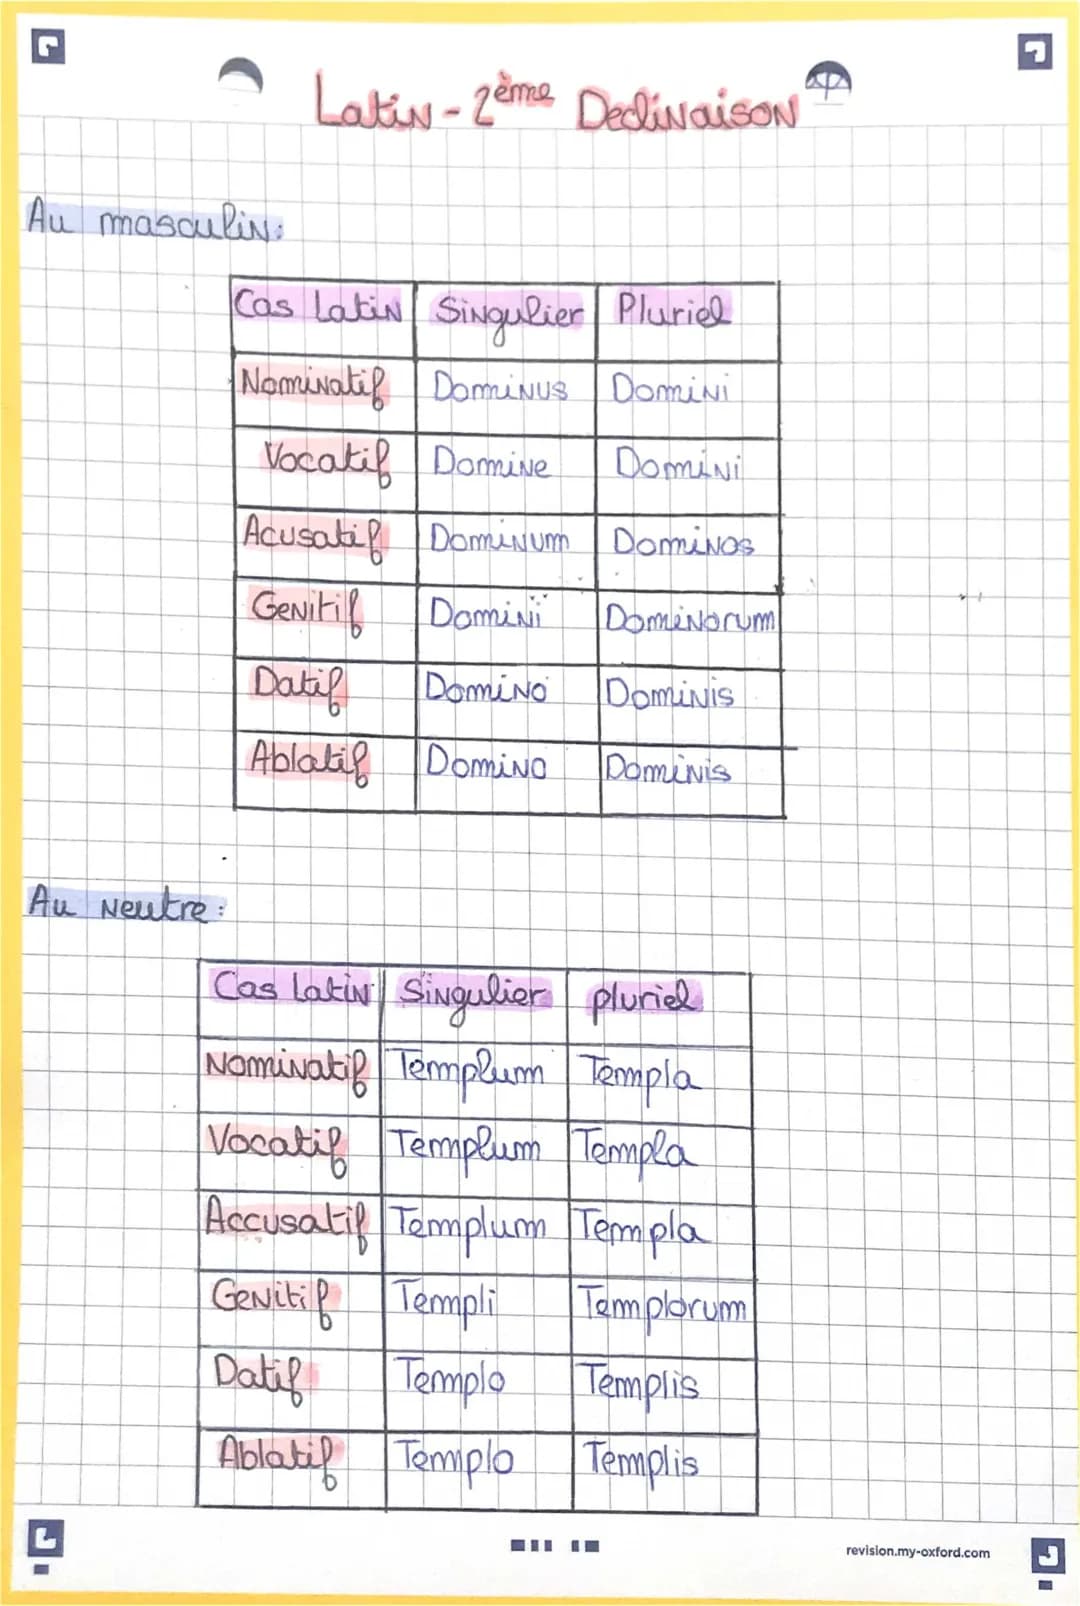 Latin - 2ème Declinaison
Au masculin:
Cas Latin Singulier Pluriel
Nominatif Dominus Domini
Vocatif Domine Domini
Acusatif Dominum Dominos
Genitif Domini Dominorum
Datif Domino Dominis
Ablatif Domino Dominis
Au neutre:
Cas latin Singulier pluriel
Nominatif Templum Templa
Vocatif Templum Templa
Accusatif Templum Templa
Genitif Templi Templorum
Datif Templo Templis
Ablatif Templo Templis
revision.my-oxford.com